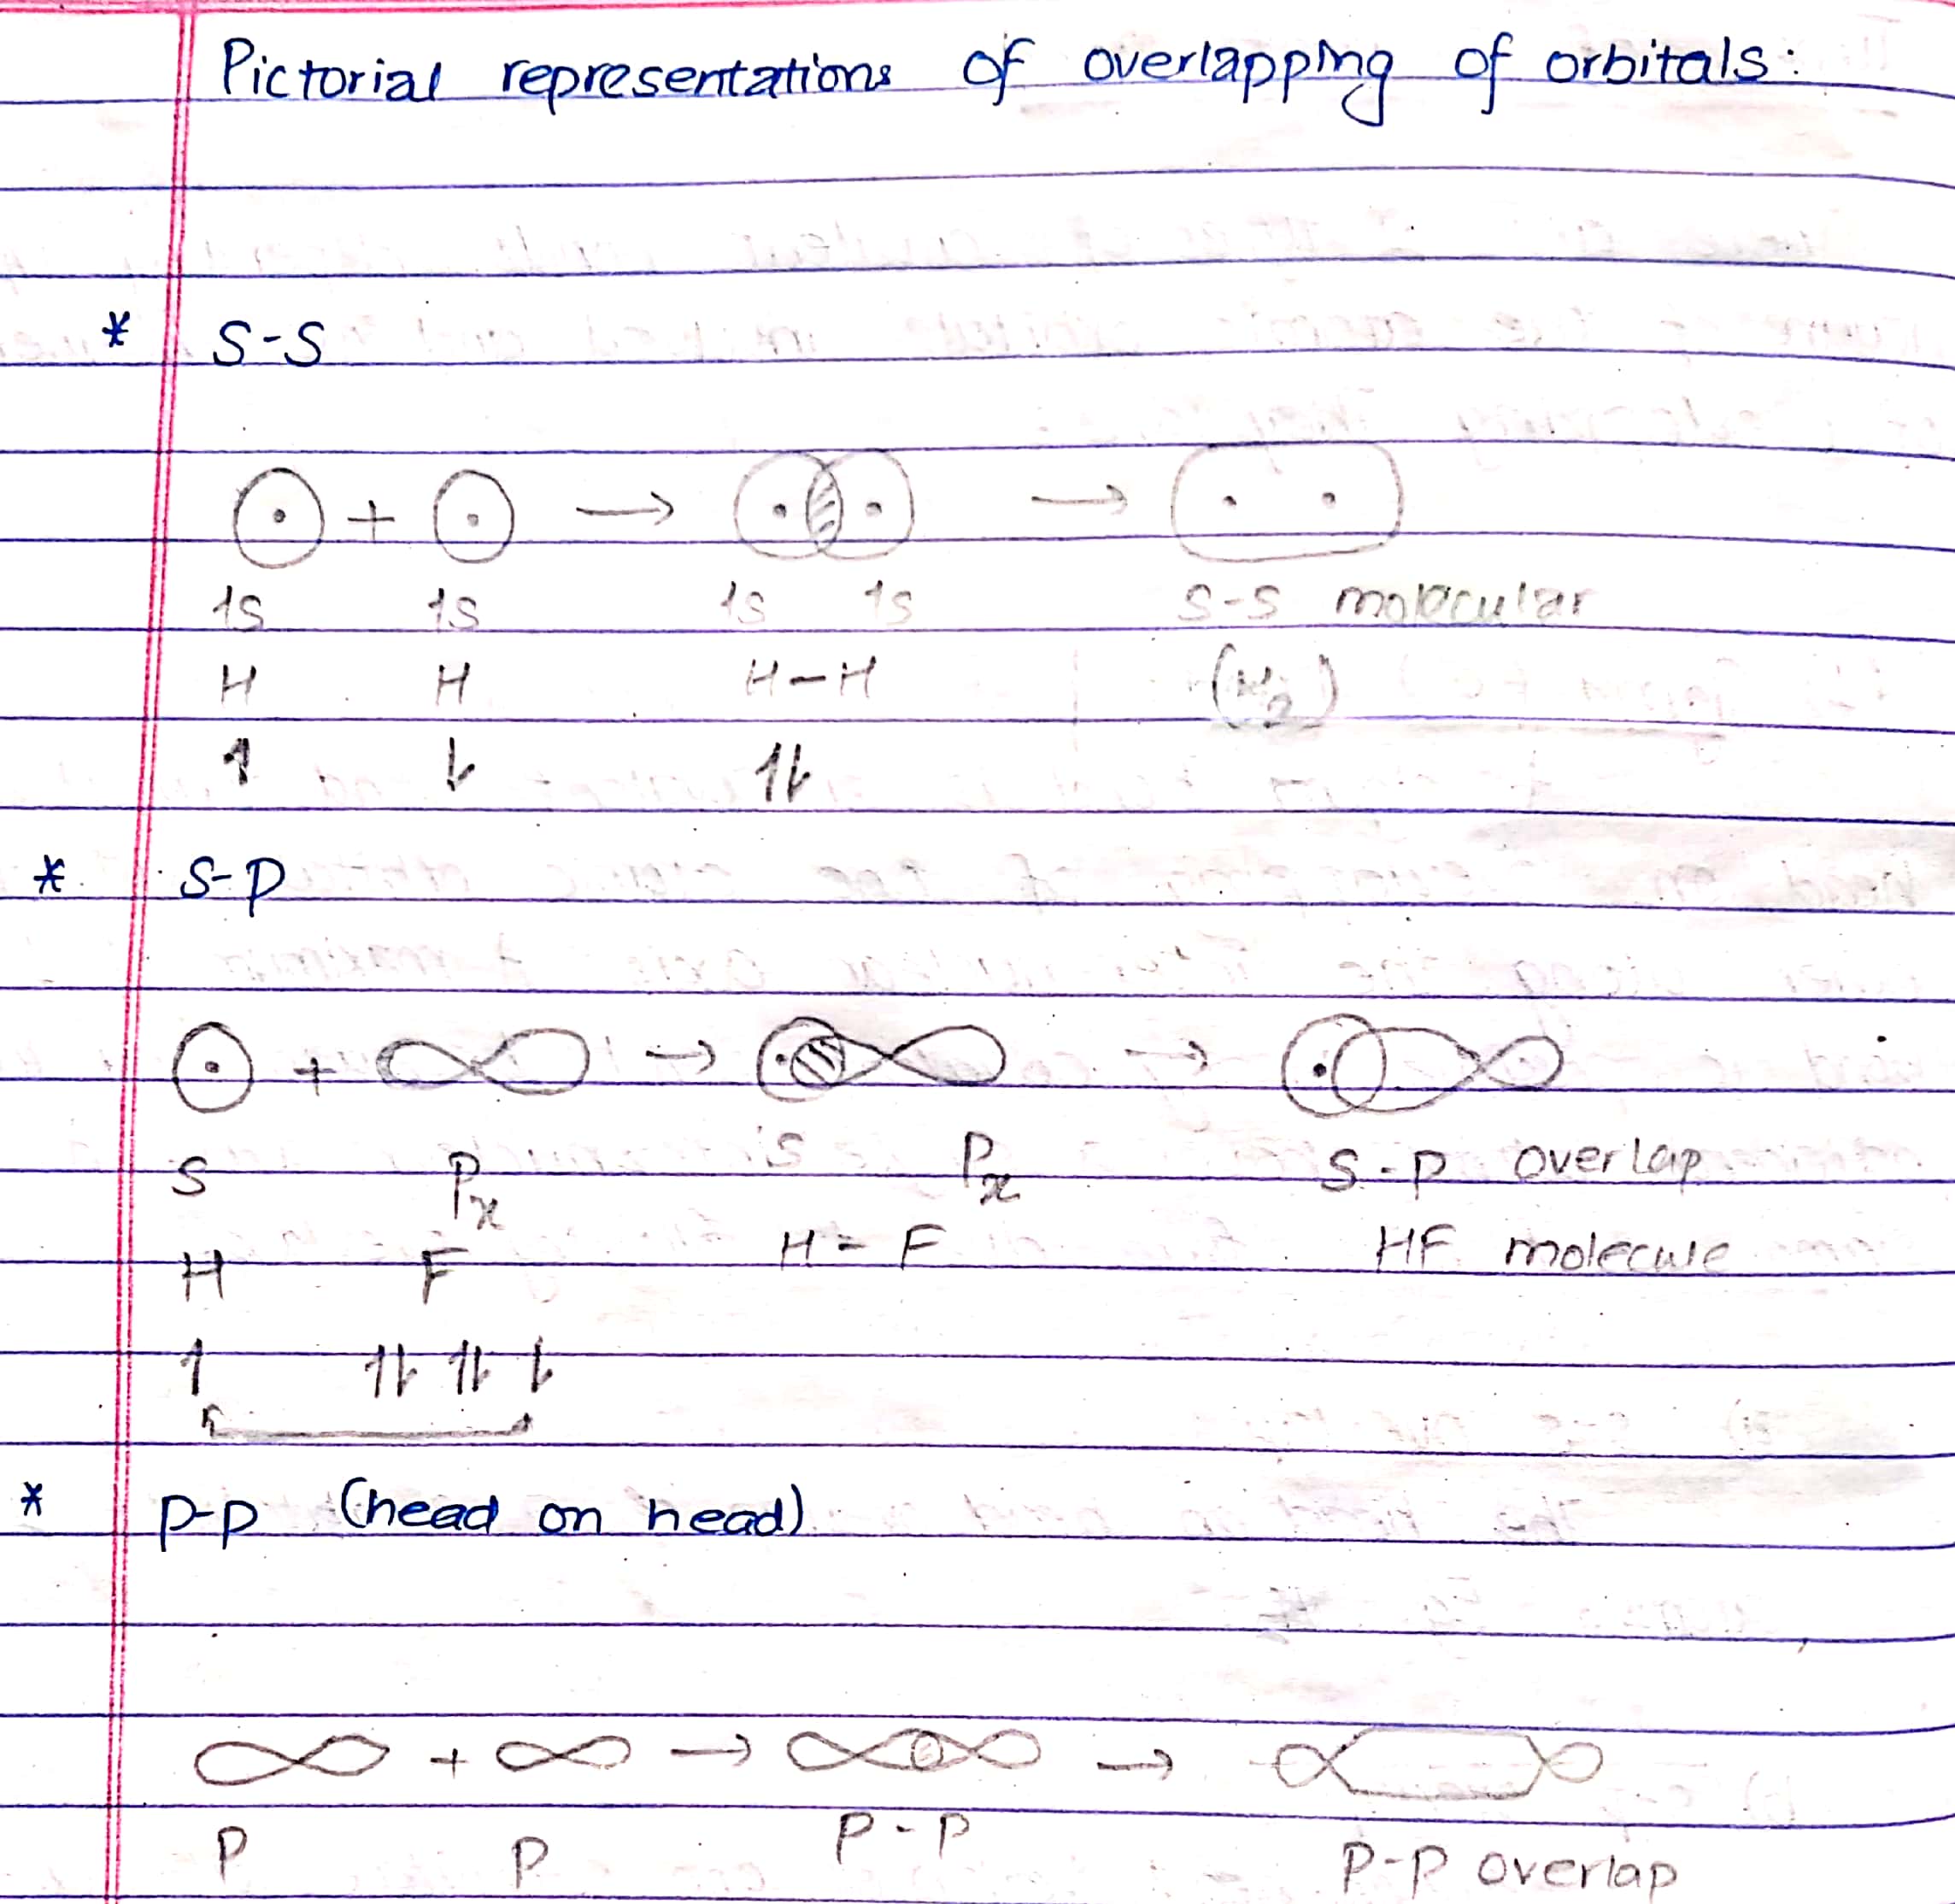 Pictorial representations of overlapping of orbitals:
* S-S
+ → →
1s 1s 1s 1s S-S molecular
H H H-H (H2)
↑ ⇂ ↿⇂
* S-P
+ → →
S Px S Px S-P overlap
H F H-F HF molecule
↿ ↿⇂ ↿⇂ ⇂
* P-P (head on head)
+ → →
P P P-P P-P overlap